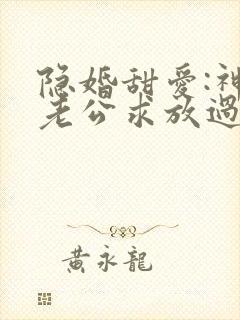 隐婚甜愛:神
老公求放過
黃永龍